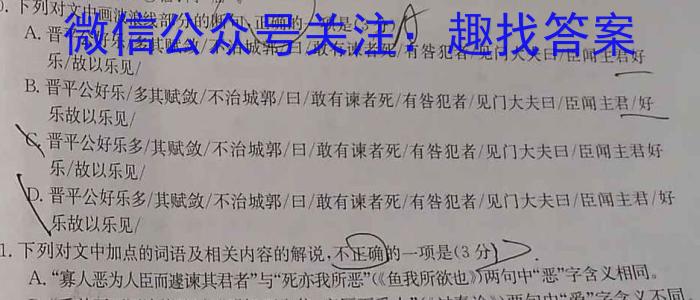 0. 下列对文中画波浪线部分的断句,正确的一项是( A
微信公众号关注:趣找答案
A. 晋平 君/好
乐/故以乐见/
B. 晋平公好乐/多其赋敛/不治城郭/曰/敢有谏者死/有咎犯者/见门大夫曰/臣闻主君/好
乐故以乐见/
C. 晋平公好乐多/其赋敛/不治城郭/曰/敢有谏者死/有咎犯者/见门大夫曰/臣闻主君好
乐/故以乐见/
D. 晋平公好乐多/其赋敛/不治城郭/曰/敢有谏者死/有咎犯者/见门大夫曰/臣闻主君/好
乐故以乐见/
1. 下列对文中加点的词语及相关内容的解说,不正确的一项是(3分)
A.“寡人恶为人臣而遽谏其君者”与“死亦我所恶”(《鱼我所欲也》)两句中“恶”字含义相同。
字含义不同